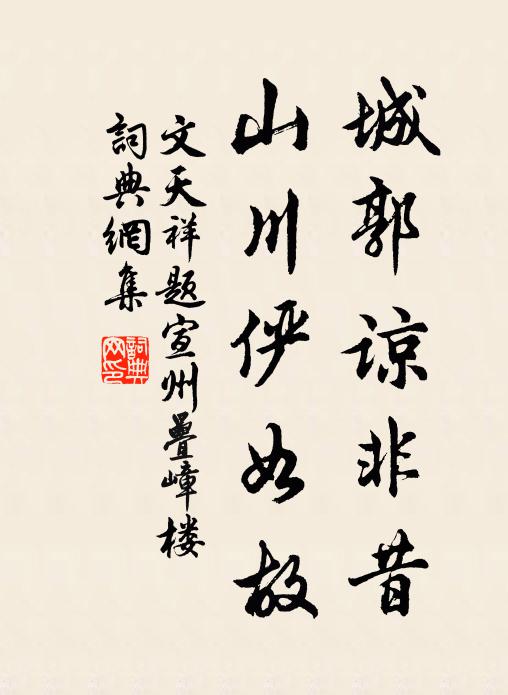 城郭谅非昔
山川俨如故
文天祥题宣州疊嶂楼
詞典網集
詞典
网印